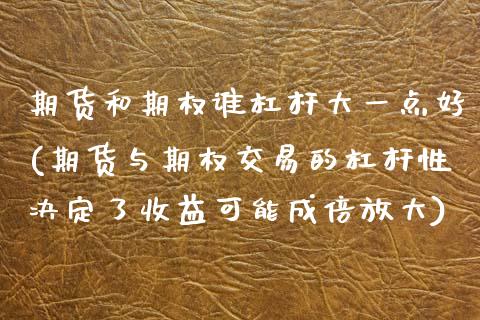 期货和期权谁杠杆大一点好
(期货与期权交易的杠杆性
决定了收益可能成倍放大)